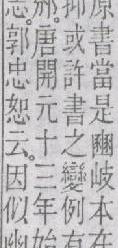 原書當是豳岐本在
抑或許書之變例有
邠唐開元十三年始
志郭忠恕云因似幽